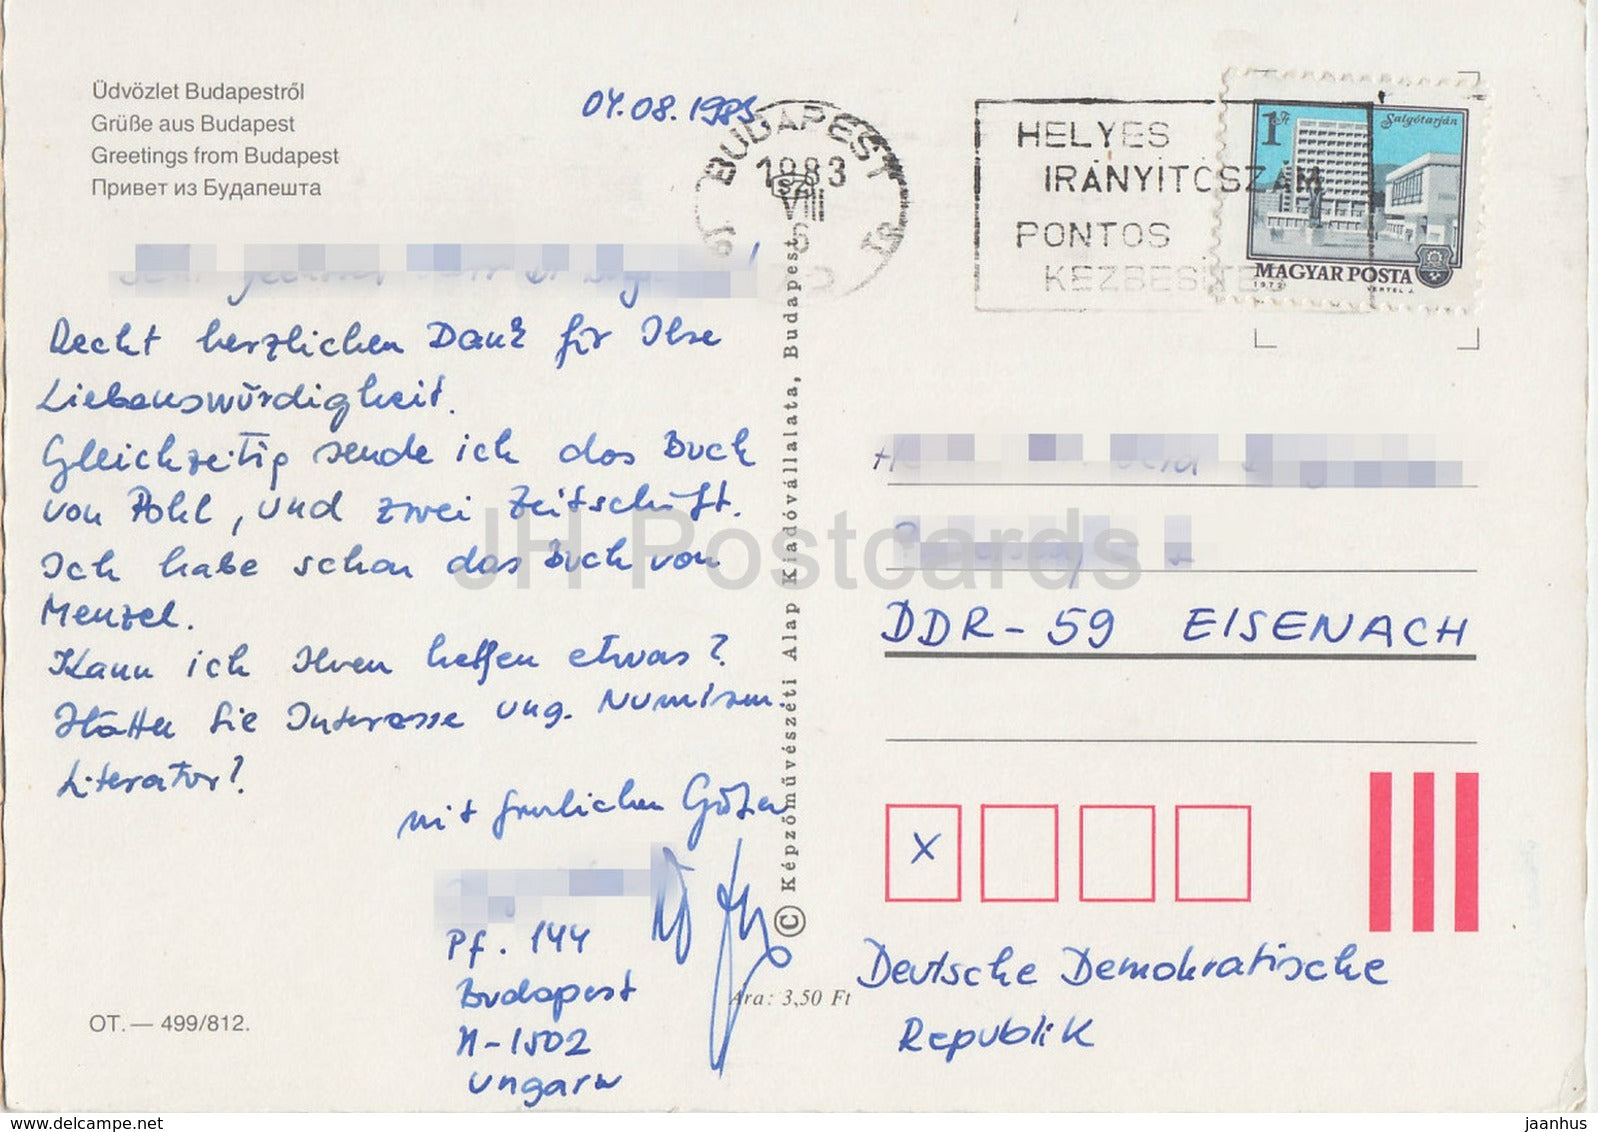 Üdvözlet Budapestről
Grüße aus Budapest
Greetings from Budapest
Привет из Будапешта
04.08.1983
BUDAPEST
1983
VIII
HELYES
IRÁNYITÓSZÁM
PONTOS
KÉZBESITÉ
1 Ft
Salgótarján
MAGYAR POSTA
1972
VERTEL J.
Recht herzlichen Dank für Ihre
Liebenswürdigkeit.
Gleichzeitig sende ich das Buch
von Pohl, und zwei Zeitschrift.
Ich habe schon das Buch von
Menzel.
Kann ich Ihren helfen etwas?
Hätten Sie Interesse ung. Numism.
Literatur?
mit freulichen Grüßen
Pf. 144
Budapest
H-1502
Ungarn
OT. — 499/812.
© Képzőművészeti Alap Kiadóvállalata, Budapest
Ára: 3,50 Ft
DDR - 59 EISENACH
X
Deutsche Demokratische
Republik
JH Postcards
www.delcampe.net
jaanhus